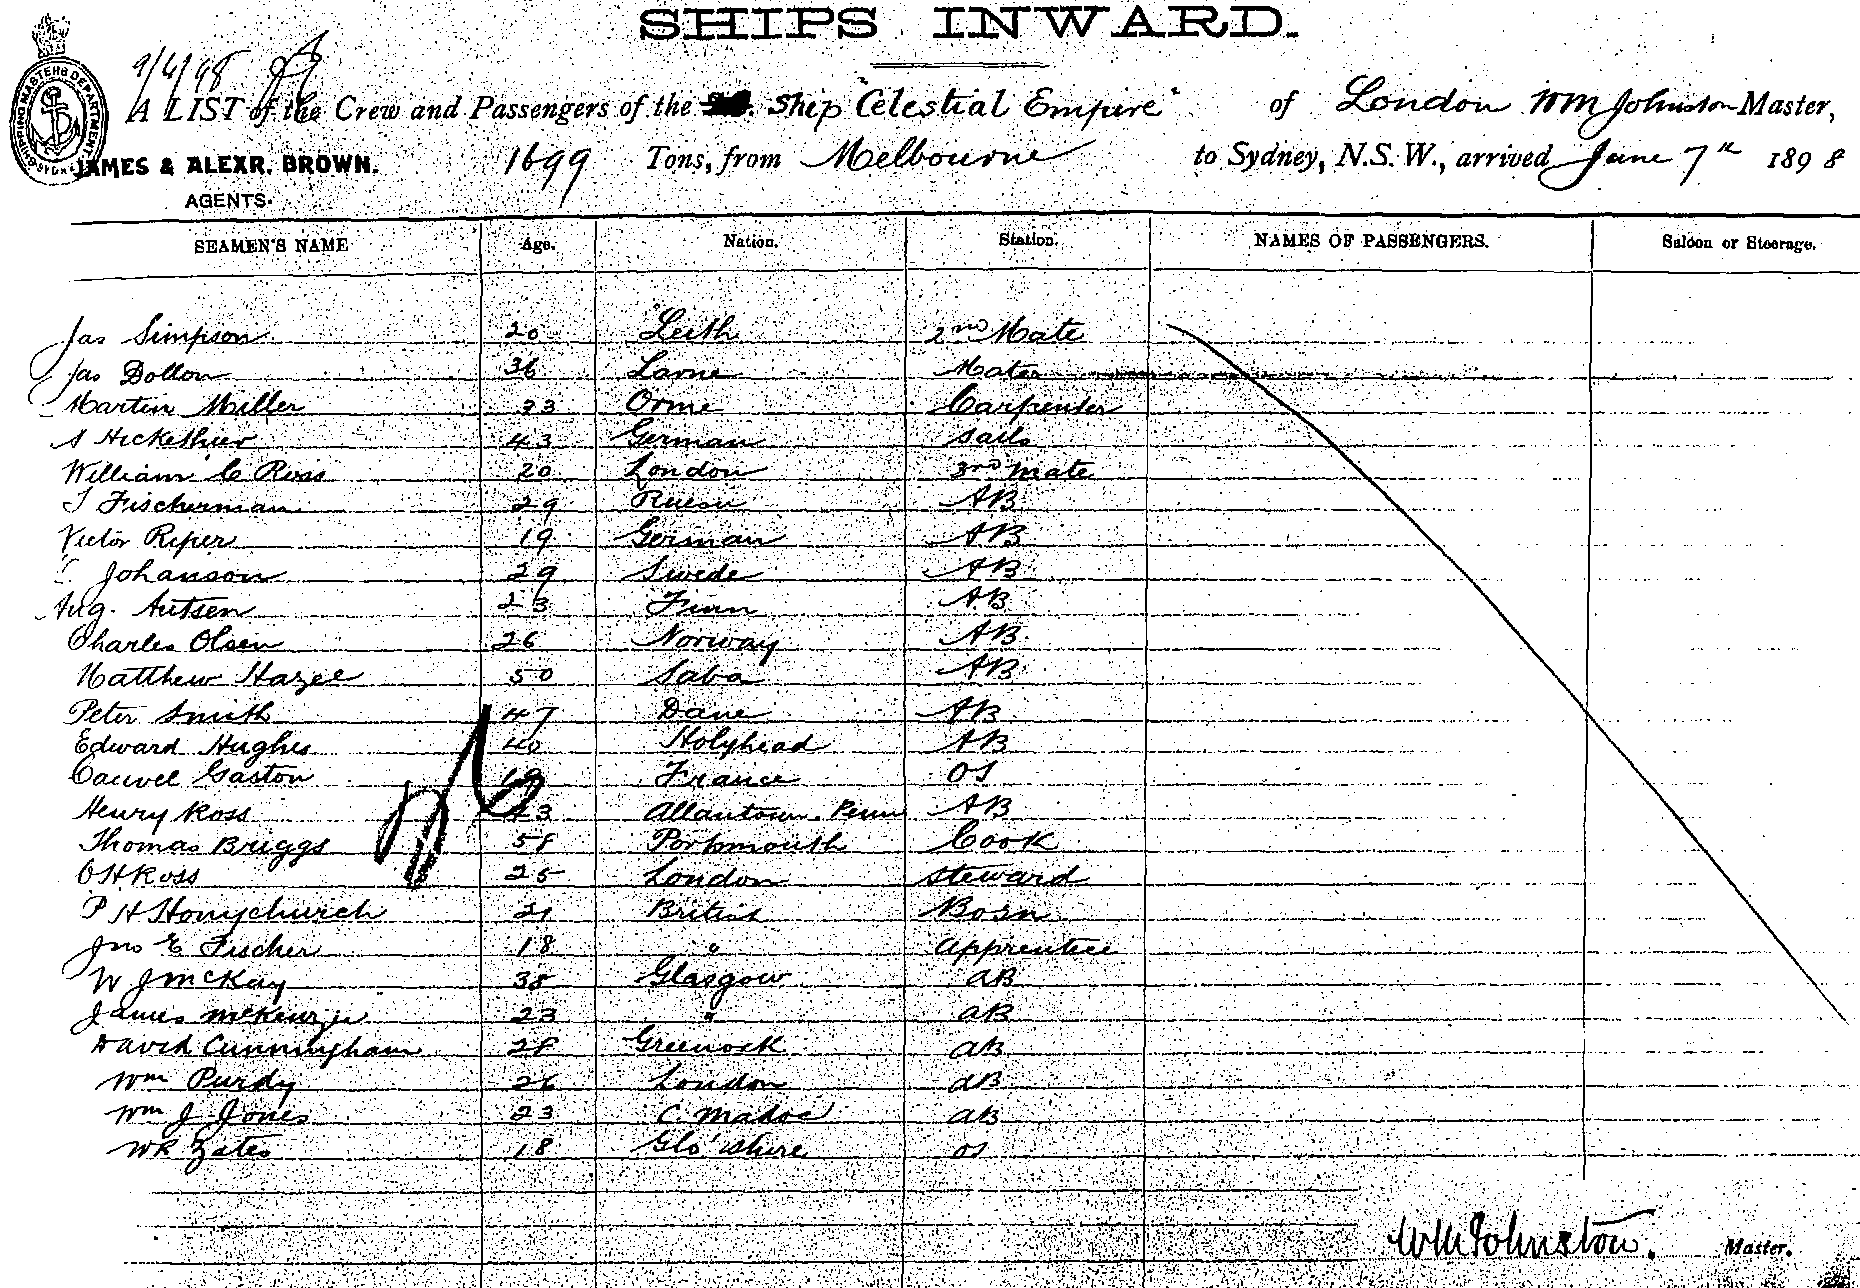 SHIPS INWARD.
9/6/98
A LIST of the Crew and Passengers of the Ship "Celestial Empire" of London Wm Johnston Master,
JAMES & ALEXR. BROWN. 1699 Tons, from Melbourne to Sydney, N.S.W., arrived June 7th 1898
AGENTS.
SEAMEN'S NAME Age. Nation. Station. NAMES OF PASSENGERS. Saloon or Steerage.
Jas Simpson 20 Leith 2nd Mate
Jas Dollon 36 Larne Mate
Martin Miller 23 Orme Carpenter
43 German Sails
William C Ross 20 London 3rd Mate
Fischerman 29 AB
Victor Riper 19 German AB
Johanson 29 Swede AB
Aug. Autsen 23 Finn AB
Charles Olsen 26 Norway AB
Matthew Hazel 50 Saba AB
Peter Smith 47 Dane AB
Edward Hughes 40 Holyhead AB
Cauvel Gaston 19 France OS
Henry Ross 23 Allantown. Penn AB
Thomas Briggs 58 Portsmouth Cook
OH Ross 25 London Steward
P H Honychurch 21 British Bosn
Jno E Fischer 18 " Apprentice
W J McKay 38 Glasgow AB
James McKenzie 23 " AB
David Cunningham 28 Greenock AB
Wm Purdy 26 London AB
Wm J Jones 23 C. Madoc AB
WR Yates 18 Glo'shire OS
Wm Johnston. Master.